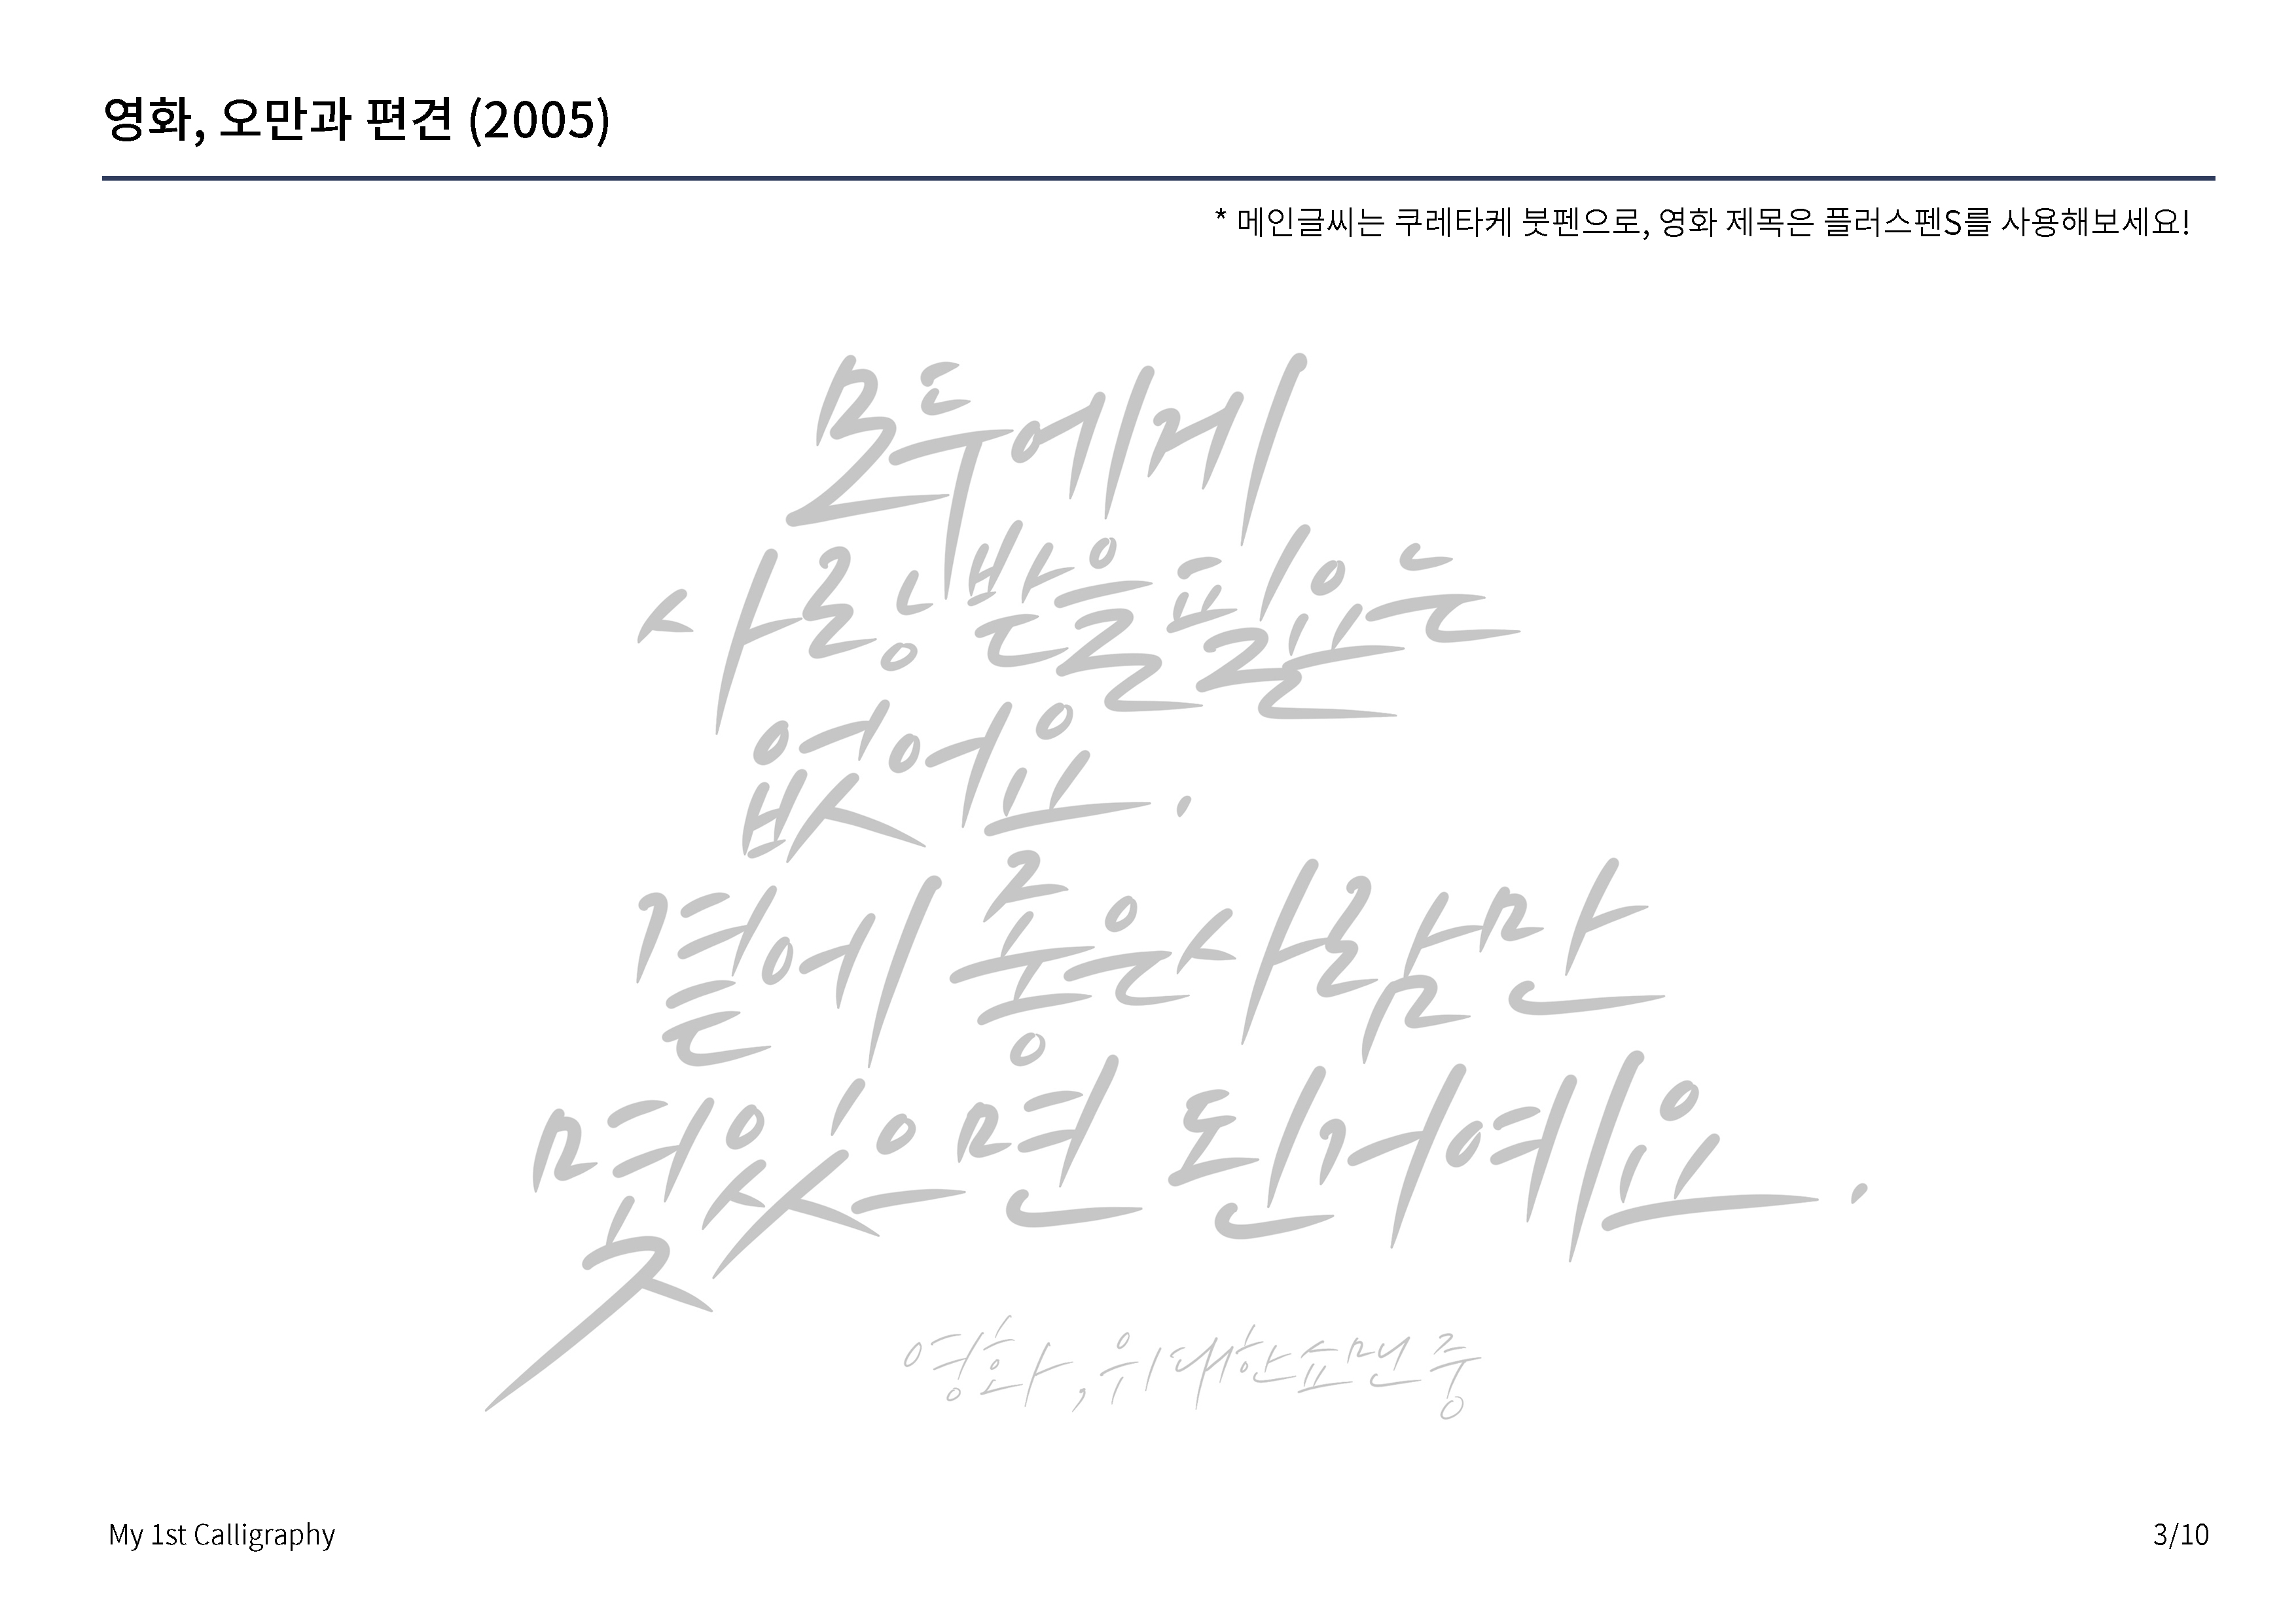 영화, 오만과 편견 (2005)
* 메인글씨는 쿠레타케 붓펜으로, 영화 제목은 플러스펜S를 사용해보세요!
모두에게
사랑받을 필요는
없어요.
곁에 좋은 사람만
몇 있으면 된 거예요.
영화, 위대한 쇼맨 중
My 1st Calligraphy
3/10